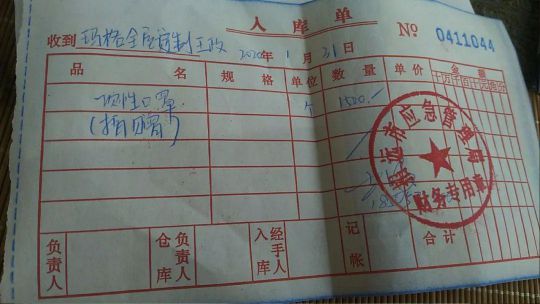 入库单
收到 玛格全屋定制王政 2020年1月31日 Nº 0411044
品名 规格 单位 数量 单价 金额
千百十万千百十元角分
一次性口罩 个 1500.—
(捐赠)
应急管理局
财务专用章
负责人 仓库负责人 入库经手人 记帐 合计